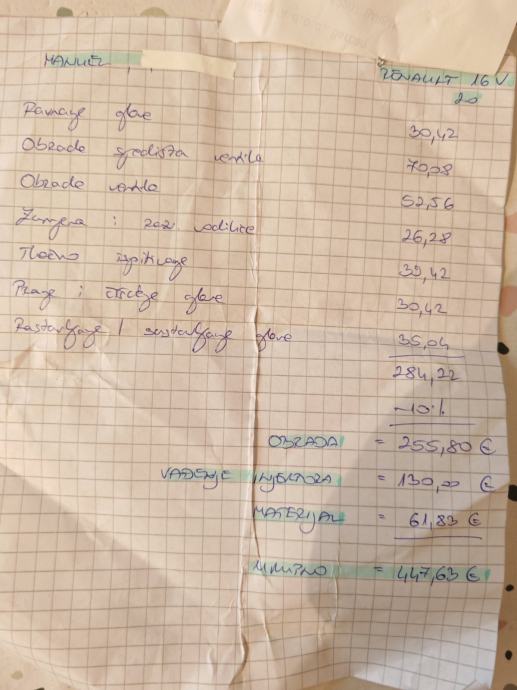 MANUEL
RENAULT 16V
2.0
Ravnaje glave 30,42
Obrada sjedišta ventila 70,08
Obrada ventila 52,56
Zamjena i vodilice 26,28
Tlačno ispitivaje 39,42
Praje i čišćeje glave 30,42
Rastavljaje / sastavljaje glave 35,04
284,22
-10%
OBRADA = 255,80 €
VAĐENJE INJEKTORA = 130,00 €
MATERIJAL = 61,83 €
UKUPNO = 447,63 €